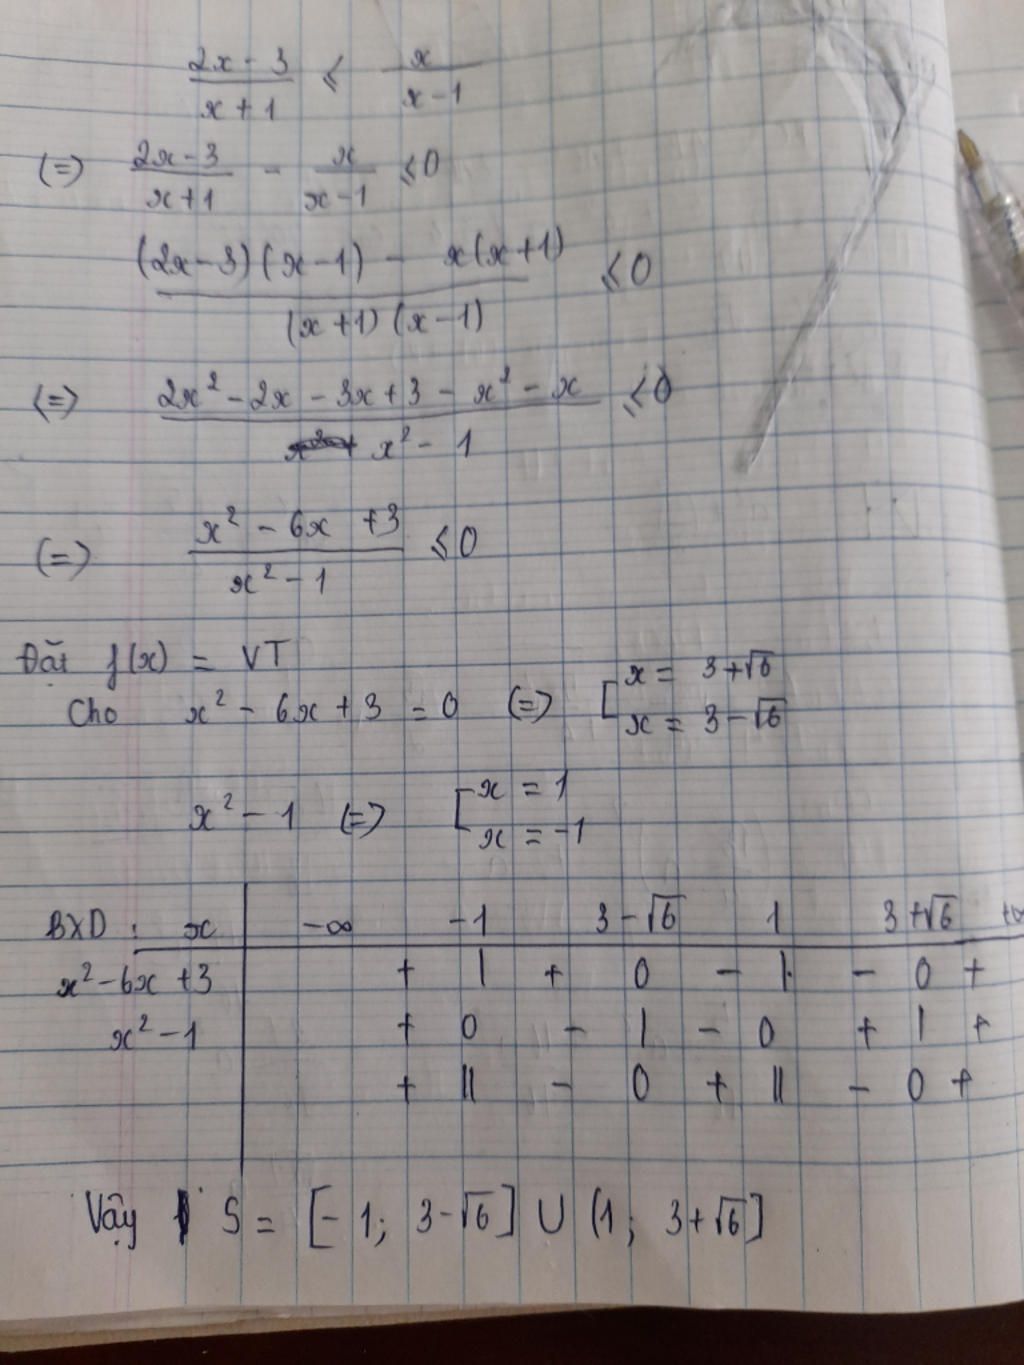 2x - 3 / x + 1 ≤ x / x - 1
(=) 2x - 3 / x + 1 - x / x - 1 ≤ 0
(2x - 3)(x - 1) - x(x + 1) / (x + 1)(x - 1) ≤ 0
(=) 2x² - 2x - 3x + 3 - x² - x / x² - 1 ≤ 0
(=) x² - 6x + 3 / x² - 1 ≤ 0
Đặt f(x) = VT
Cho x² - 6x + 3 = 0 (=) [ x = 3 + √6
x = 3 - √6
x² - 1 (=) [ x = 1
x = -1
BXD : x -∞ -1 3 - √6 1 3 + √6 +∞
x² - 6x + 3 + | + 0 - | - 0 +
x² - 1 + 0 - | - 0 + | +
+ || - 0 + || - 0 +
Vậy S = [- 1; 3 - √6] U (1; 3 + √6]